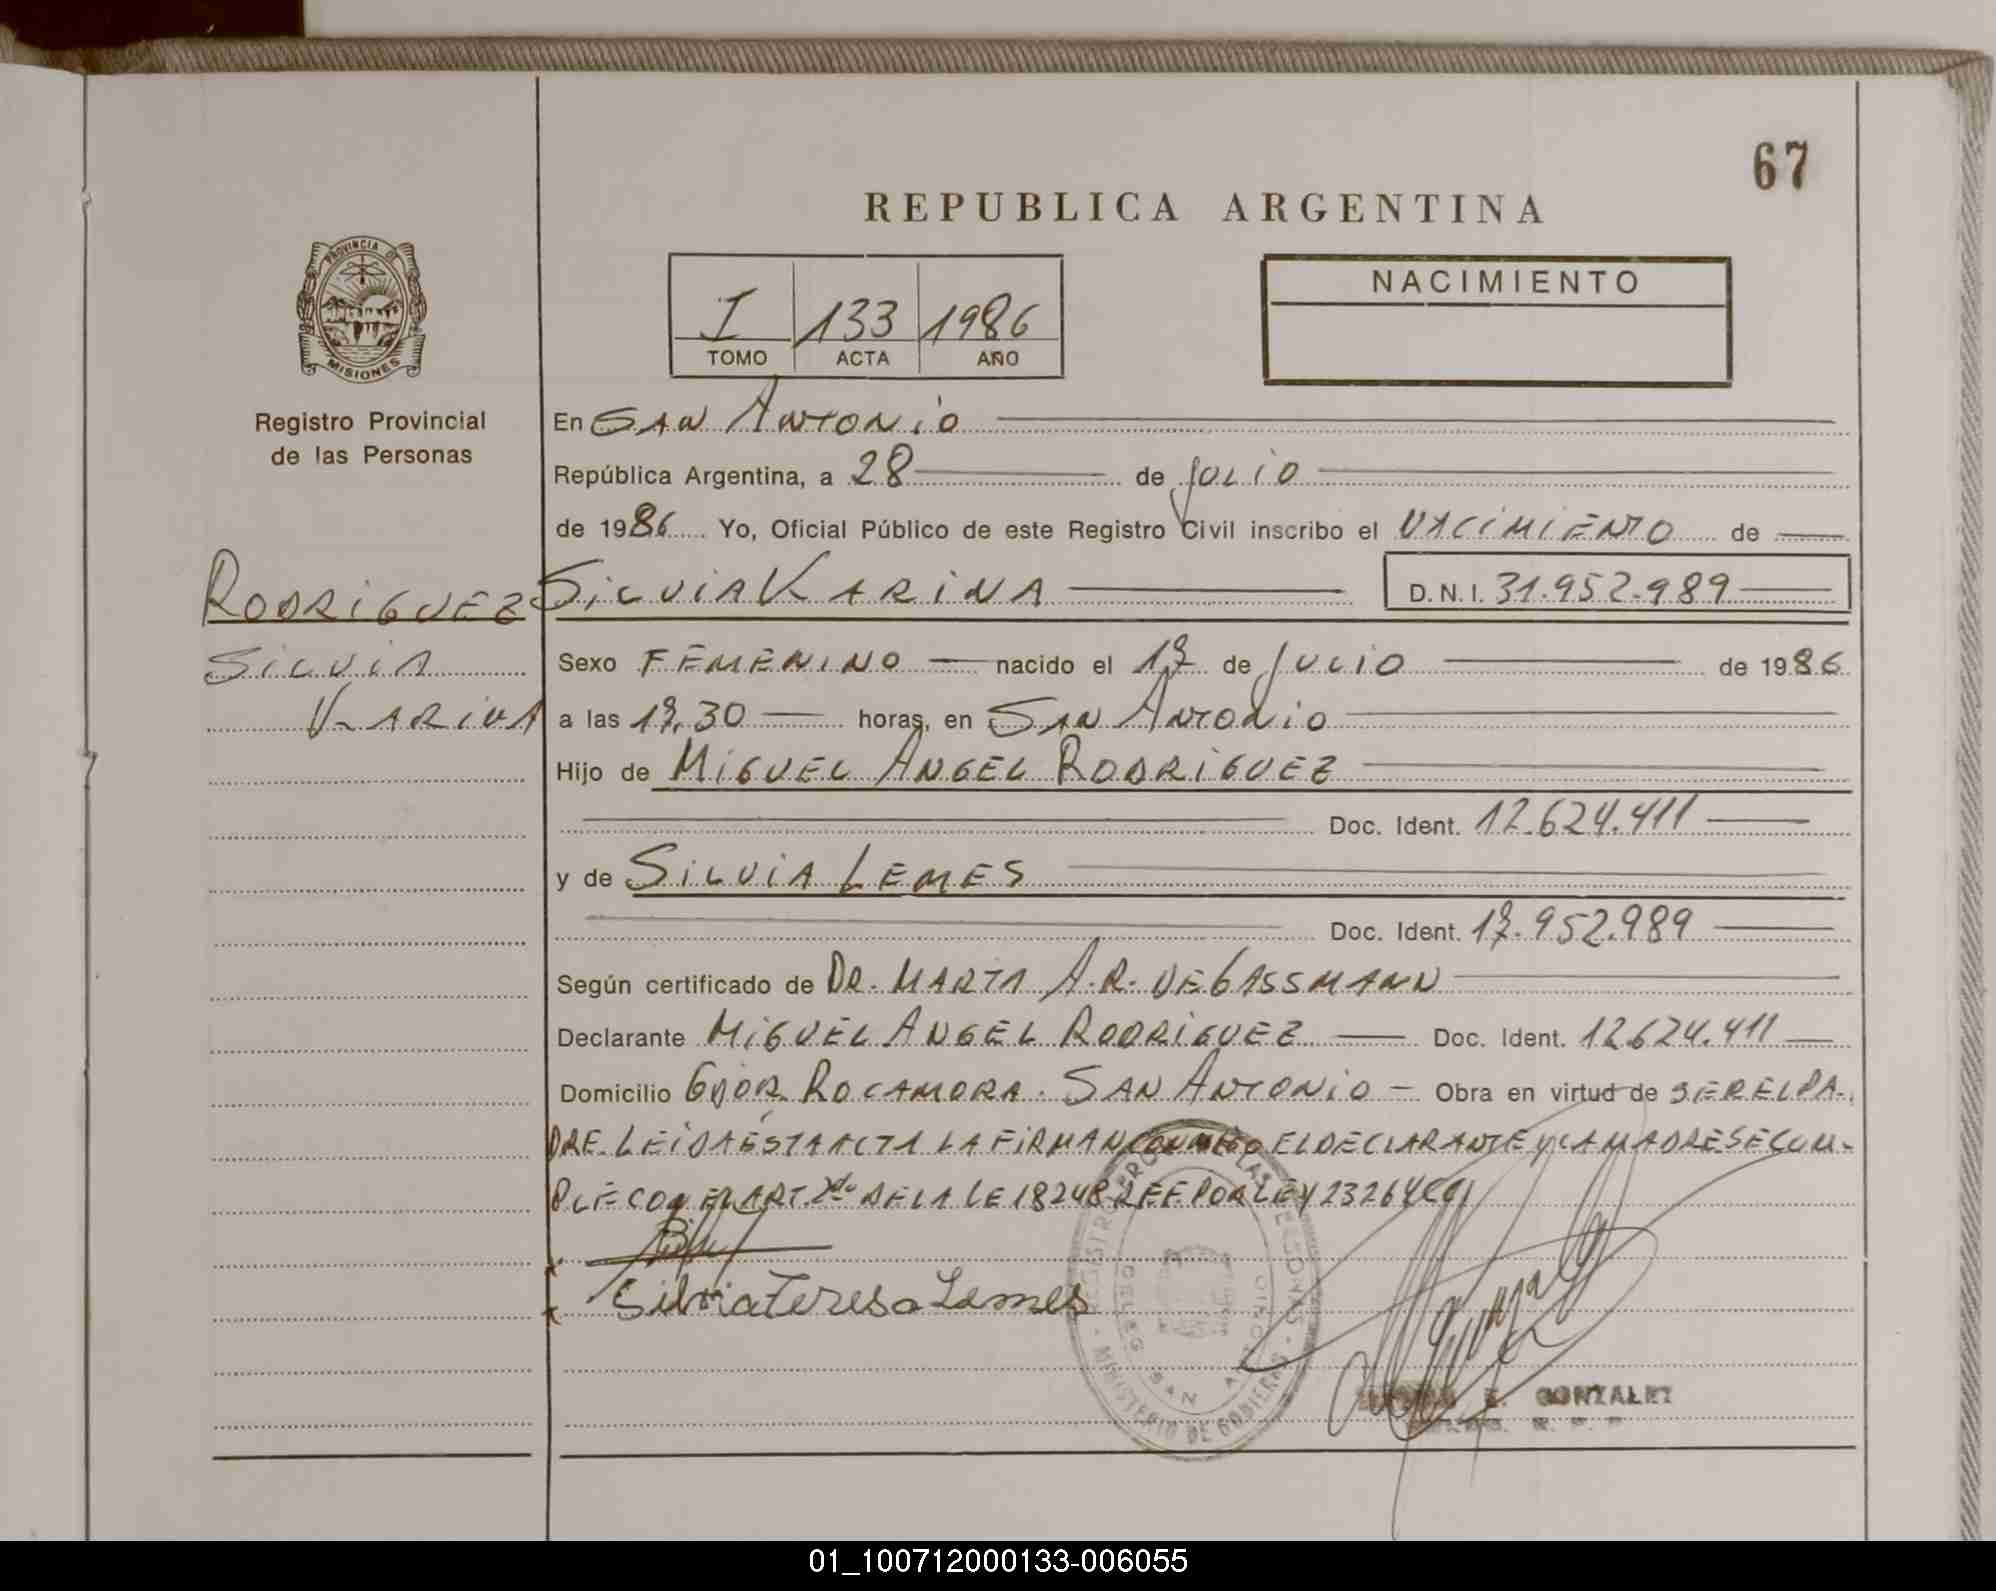 67
REPUBLICA ARGENTINA
PROVINCIA DE
MISIONES
NACIMIENTO
I 133 1986
TOMO ACTA AÑO
Registro Provincial
de las Personas
En SAN ANTONIO
República Argentina, a 28 de JULIO
de 1986 Yo, Oficial Público de este Registro Civil inscribo el NACIMIENTO de
RODRIGUEZ SILVIA KARINA D.N.I. 31.952.989
SILVIA
KARINA
Sexo FEMENINO nacido el 17 de JULIO de 1986
a las 17.30 horas, en SAN ANTONIO
Hijo de MIGUEL ANGEL RODRIGUEZ
Doc. Ident. 12.624.411
y de SILVIA LEMES
Doc. Ident. 17.952.989
Según certificado de DR. MARTA A.R. DE GASSMANN
Declarante MIGUEL ANGEL RODRIGUEZ Doc. Ident. 12.624.411
Domicilio GDOR. ROCAMORA. SAN ANTONIO - Obra en virtud de SER EL PA-
DRE. LEIDA ESTA ACTA LA FIRMAN CONMIGO EL DECLARANTE Y LA MADRE SE CUM-
PLE CON EL ART. 2do DE LA LE 18248 REF. POR LEY 23264
Silvia Teresa Lemes
MINISTERIO DE GOBIERNO
SAN ANTONIO
E. GONZALEZ
01_100712000133-006055